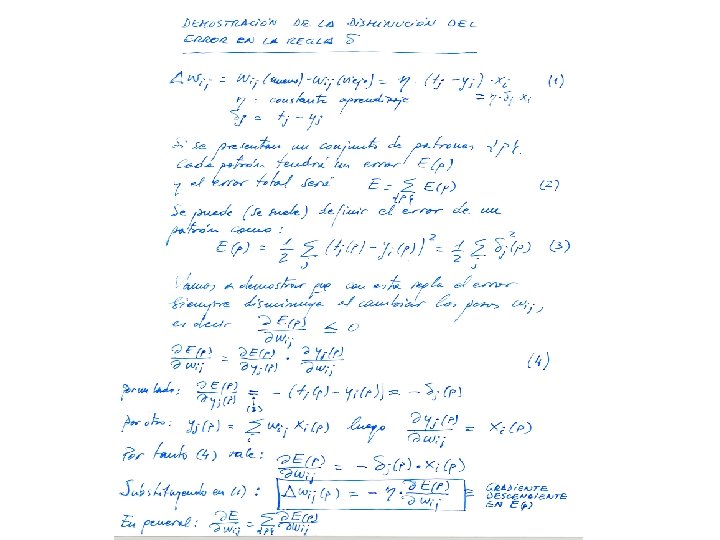 DEMOSTRACIÓN DE LA DISMINUCIÓN DEL
ERROR EN LA REGLA δ
Δwij = wij(nuevo) - wij(viejo) = η · (tj - yj) · xi (1)
η = constante aprendizaje = η · δj · xi
δj = tj - yj
Si se presentan un conjunto de patrones {p}.
Cada patrón tendrá un error E(p)
y el error total será E = Σ{p} E(p) (2)
Se puede (se suele) definir el error de un
patrón como:
E(p) = 1/2 Σj (tj(p) - yj(p))² = 1/2 Σj δj²(p) (3)
Vamos a demostrar que con esta regla el error
siempre disminuye al cambiar los pesos wij,
es decir ∂E(p)/∂wij ≤ 0
∂E(p)/∂wij = ∂E(p)/∂yj(p) · ∂yj(p)/∂wij (4)
Por un lado: ∂E(p)/∂yj(p) = (3) - (tj(p) - yj(p)) = - δj(p)
Por otro: yj(p) = Σi wij xi(p) luego ∂yj(p)/∂wij = xi(p)
Por tanto (4) vale: ∂E(p)/∂wij = - δj(p) · xi(p)
Substituyendo en (1): Δwij(p) = - η · ∂E(p)/∂wij ≡ GRADIENTE
DESCENDIENTE
EN E(p)
En general: ∂E/∂wij = Σ{p} ∂E(p)/∂wij